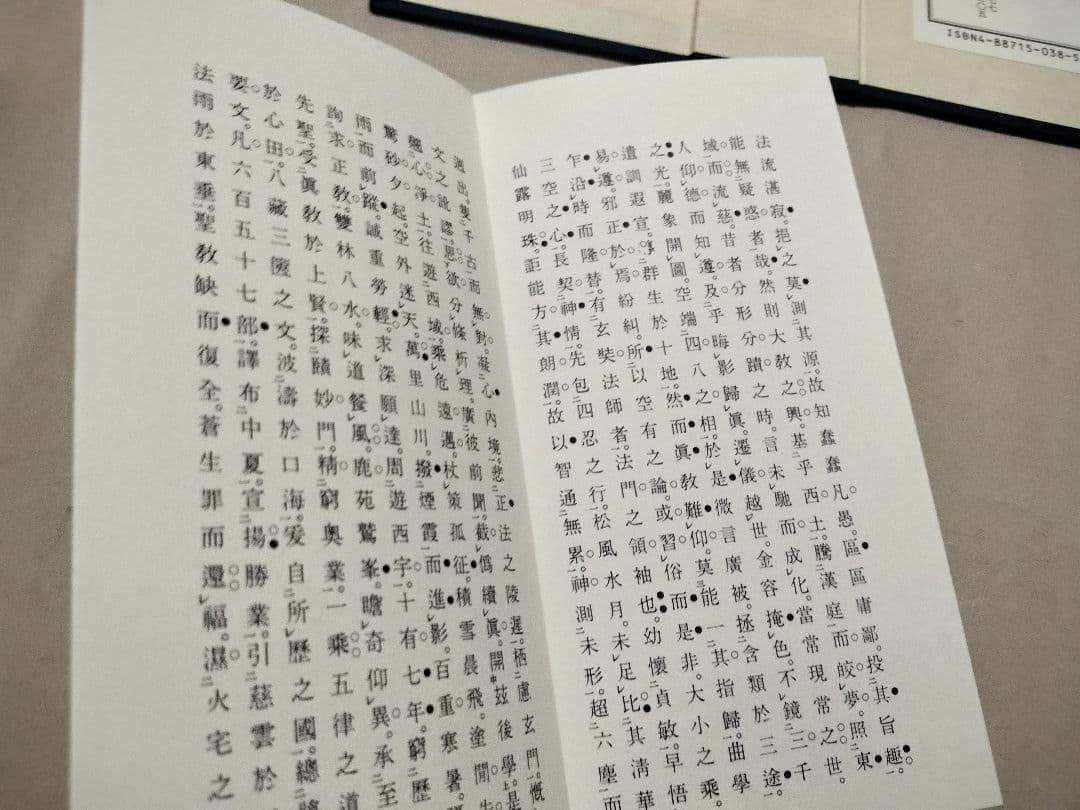 法流湛寂。挹之莫測其源。故知蠢蠢凡愚。區區庸鄙。投其旨趣。
能無疑惑者哉。然則大教之興。基乎西土。騰漢庭而皎夢。照東
域。而流慈。昔者分形分蹟之時。言未馳而成化。當常現常之世。
人仰德而知遵。及乎晦影歸眞。遷儀越世。金容掩色。不鏡三千
之光。麗象開圖。空端四八之相。於是微言廣被。拯含類於三途。
遺訓遐宣。導群生於十地。然而眞教難仰。莫能一其指歸。曲學
易遵。邪正於焉紛糾。所以空有之論。或習俗而是非。大小之乘。
乍沿時而隆替。有玄奘法師者。法門之領袖也。幼懷貞敏。早悟
三空之心。長契神情。先包四忍之行。松風水月。未足比其清華
仙露明珠。詎能方其朗潤。故以智通無累。神測未形。超六塵而
逈出。隻千古而無對。凝心內境。悲正法之陵遲。栖慮玄門。慨
文之訛謬。思欲分條析理。廣彼前聞。截僞續眞。開茲後學。是
翹心淨土。往遊西域。乘危遠邁。杖策孤征。積雪晨飛。塗閒
驚砂夕起。空外迷天。萬里山川。撥煙霞而進影。百重寒暑。
雨而前蹤。誠重勞輕。求深願達。周遊西宇。十有七年。窮歷
詢求正教。雙林八水。味道餐風。鹿苑鷲峯。瞻奇仰異。承至
先聖。受眞教於上賢。探賾妙門。精窮奧業。一乘五律之道
於心田。八藏三篋之文。波濤於口海。爰自所歷之國。總將
要文。凡六百五十七部。譯布中夏。宣揚勝業。引慈雲於
法雨於東垂。聖教缺而復全。蒼生罪而還福。濕火宅之
ISBN4-88715-038-5